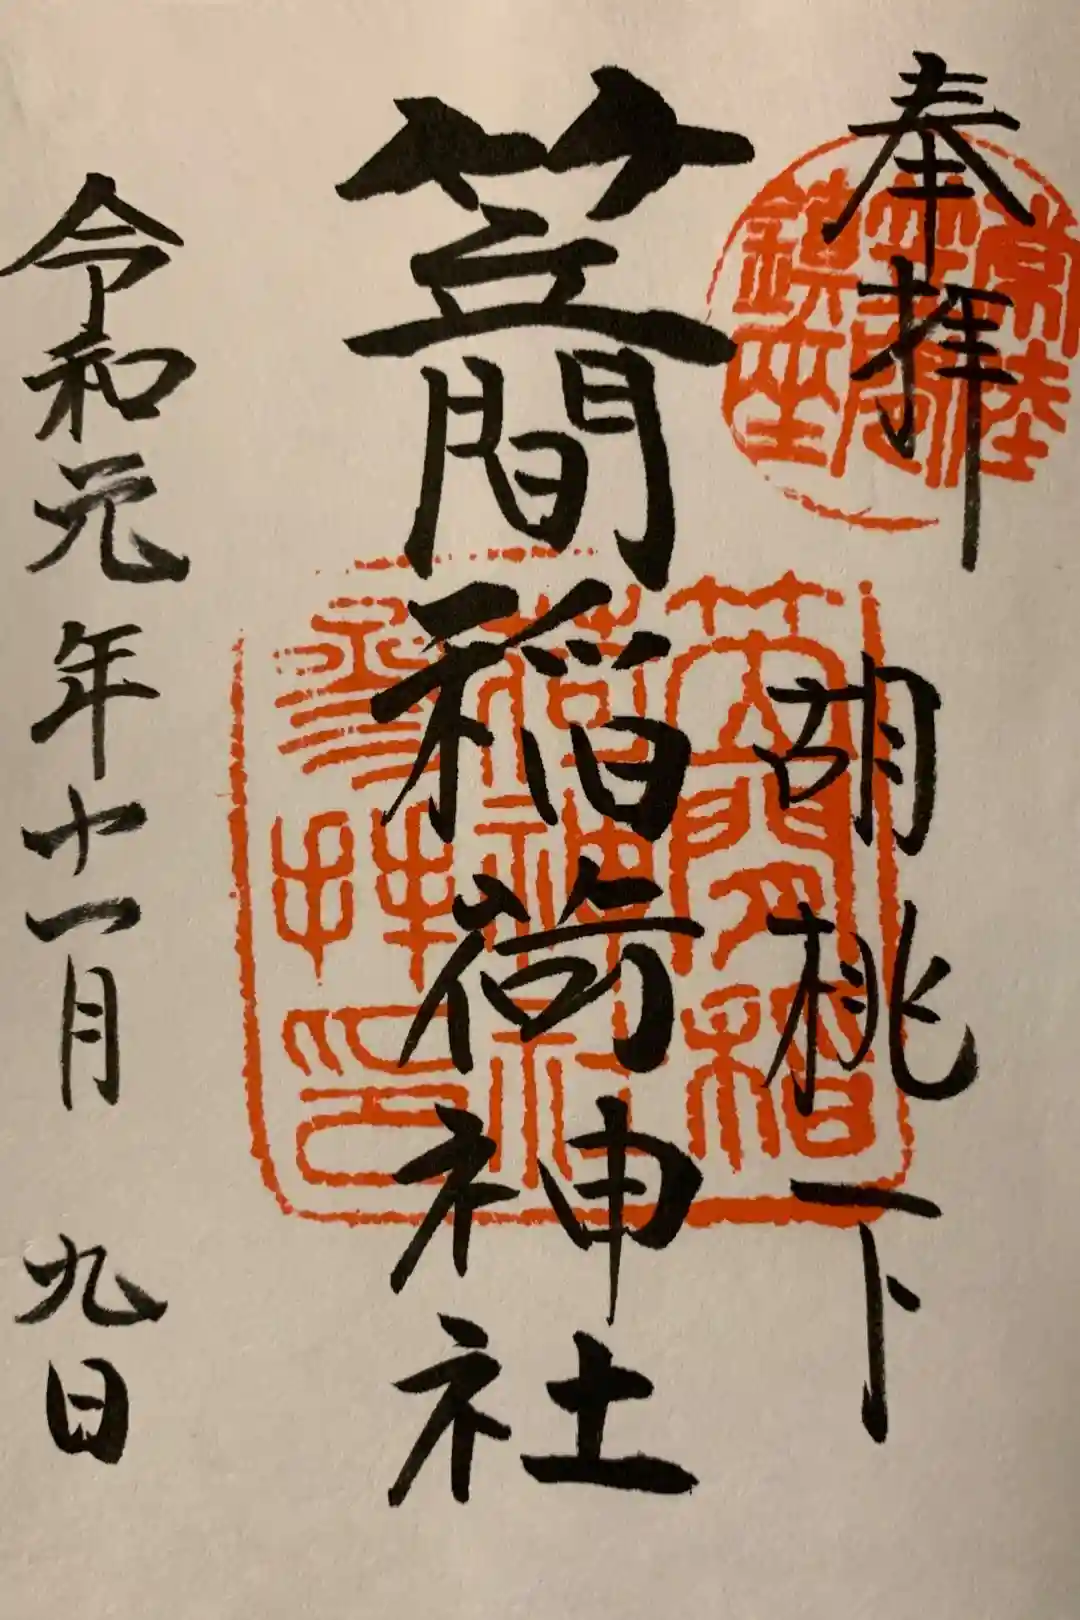 奉拝
胡桃下
笠間稲荷神社
令和元年十一月九日
常陸
鎮座
笠間稲
荷神社
参拝印